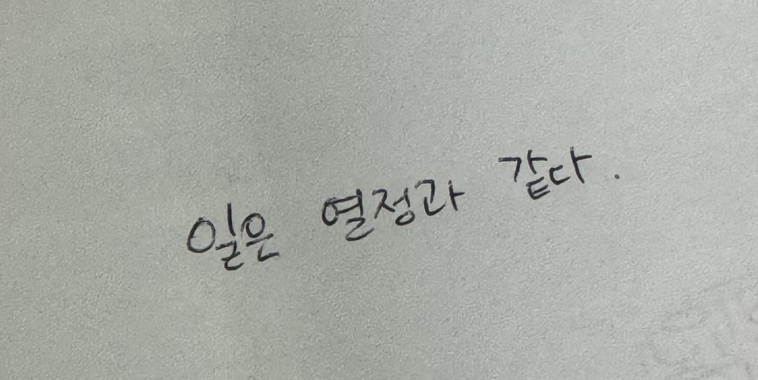 일은 열정과 같다.